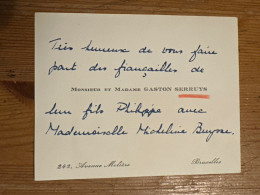 Très heureux de vous faire
part des fiançailles de
Monsieur et Madame GASTON SERRUYS
leur fils Philippe avec
Mademoiselle Micheline Buysse.
242, Avenue Molière Bruxelles